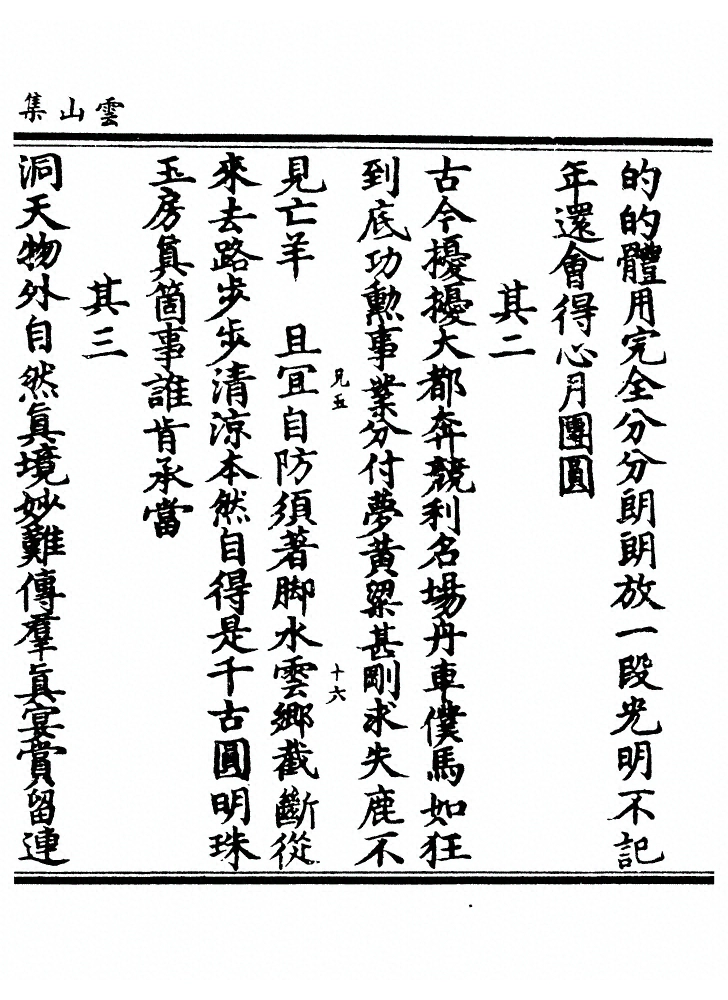 雲山集
的的體用完全分分朗朗放一段光明不記
年還會得心月團圓
其二
古今擾擾大都奔競利名場丹車僕馬如狂
到底功勲事業分付夢黃粱甚剛求失鹿不
兄五
十六
見亡羊　且冝自防須著脚水雲鄉截斷從
來去路步步清涼本然自得是千古圓明珠
玉房眞箇事誰肯承當
其三
洞天物外自然眞境妙難傳羣眞宴賞留連